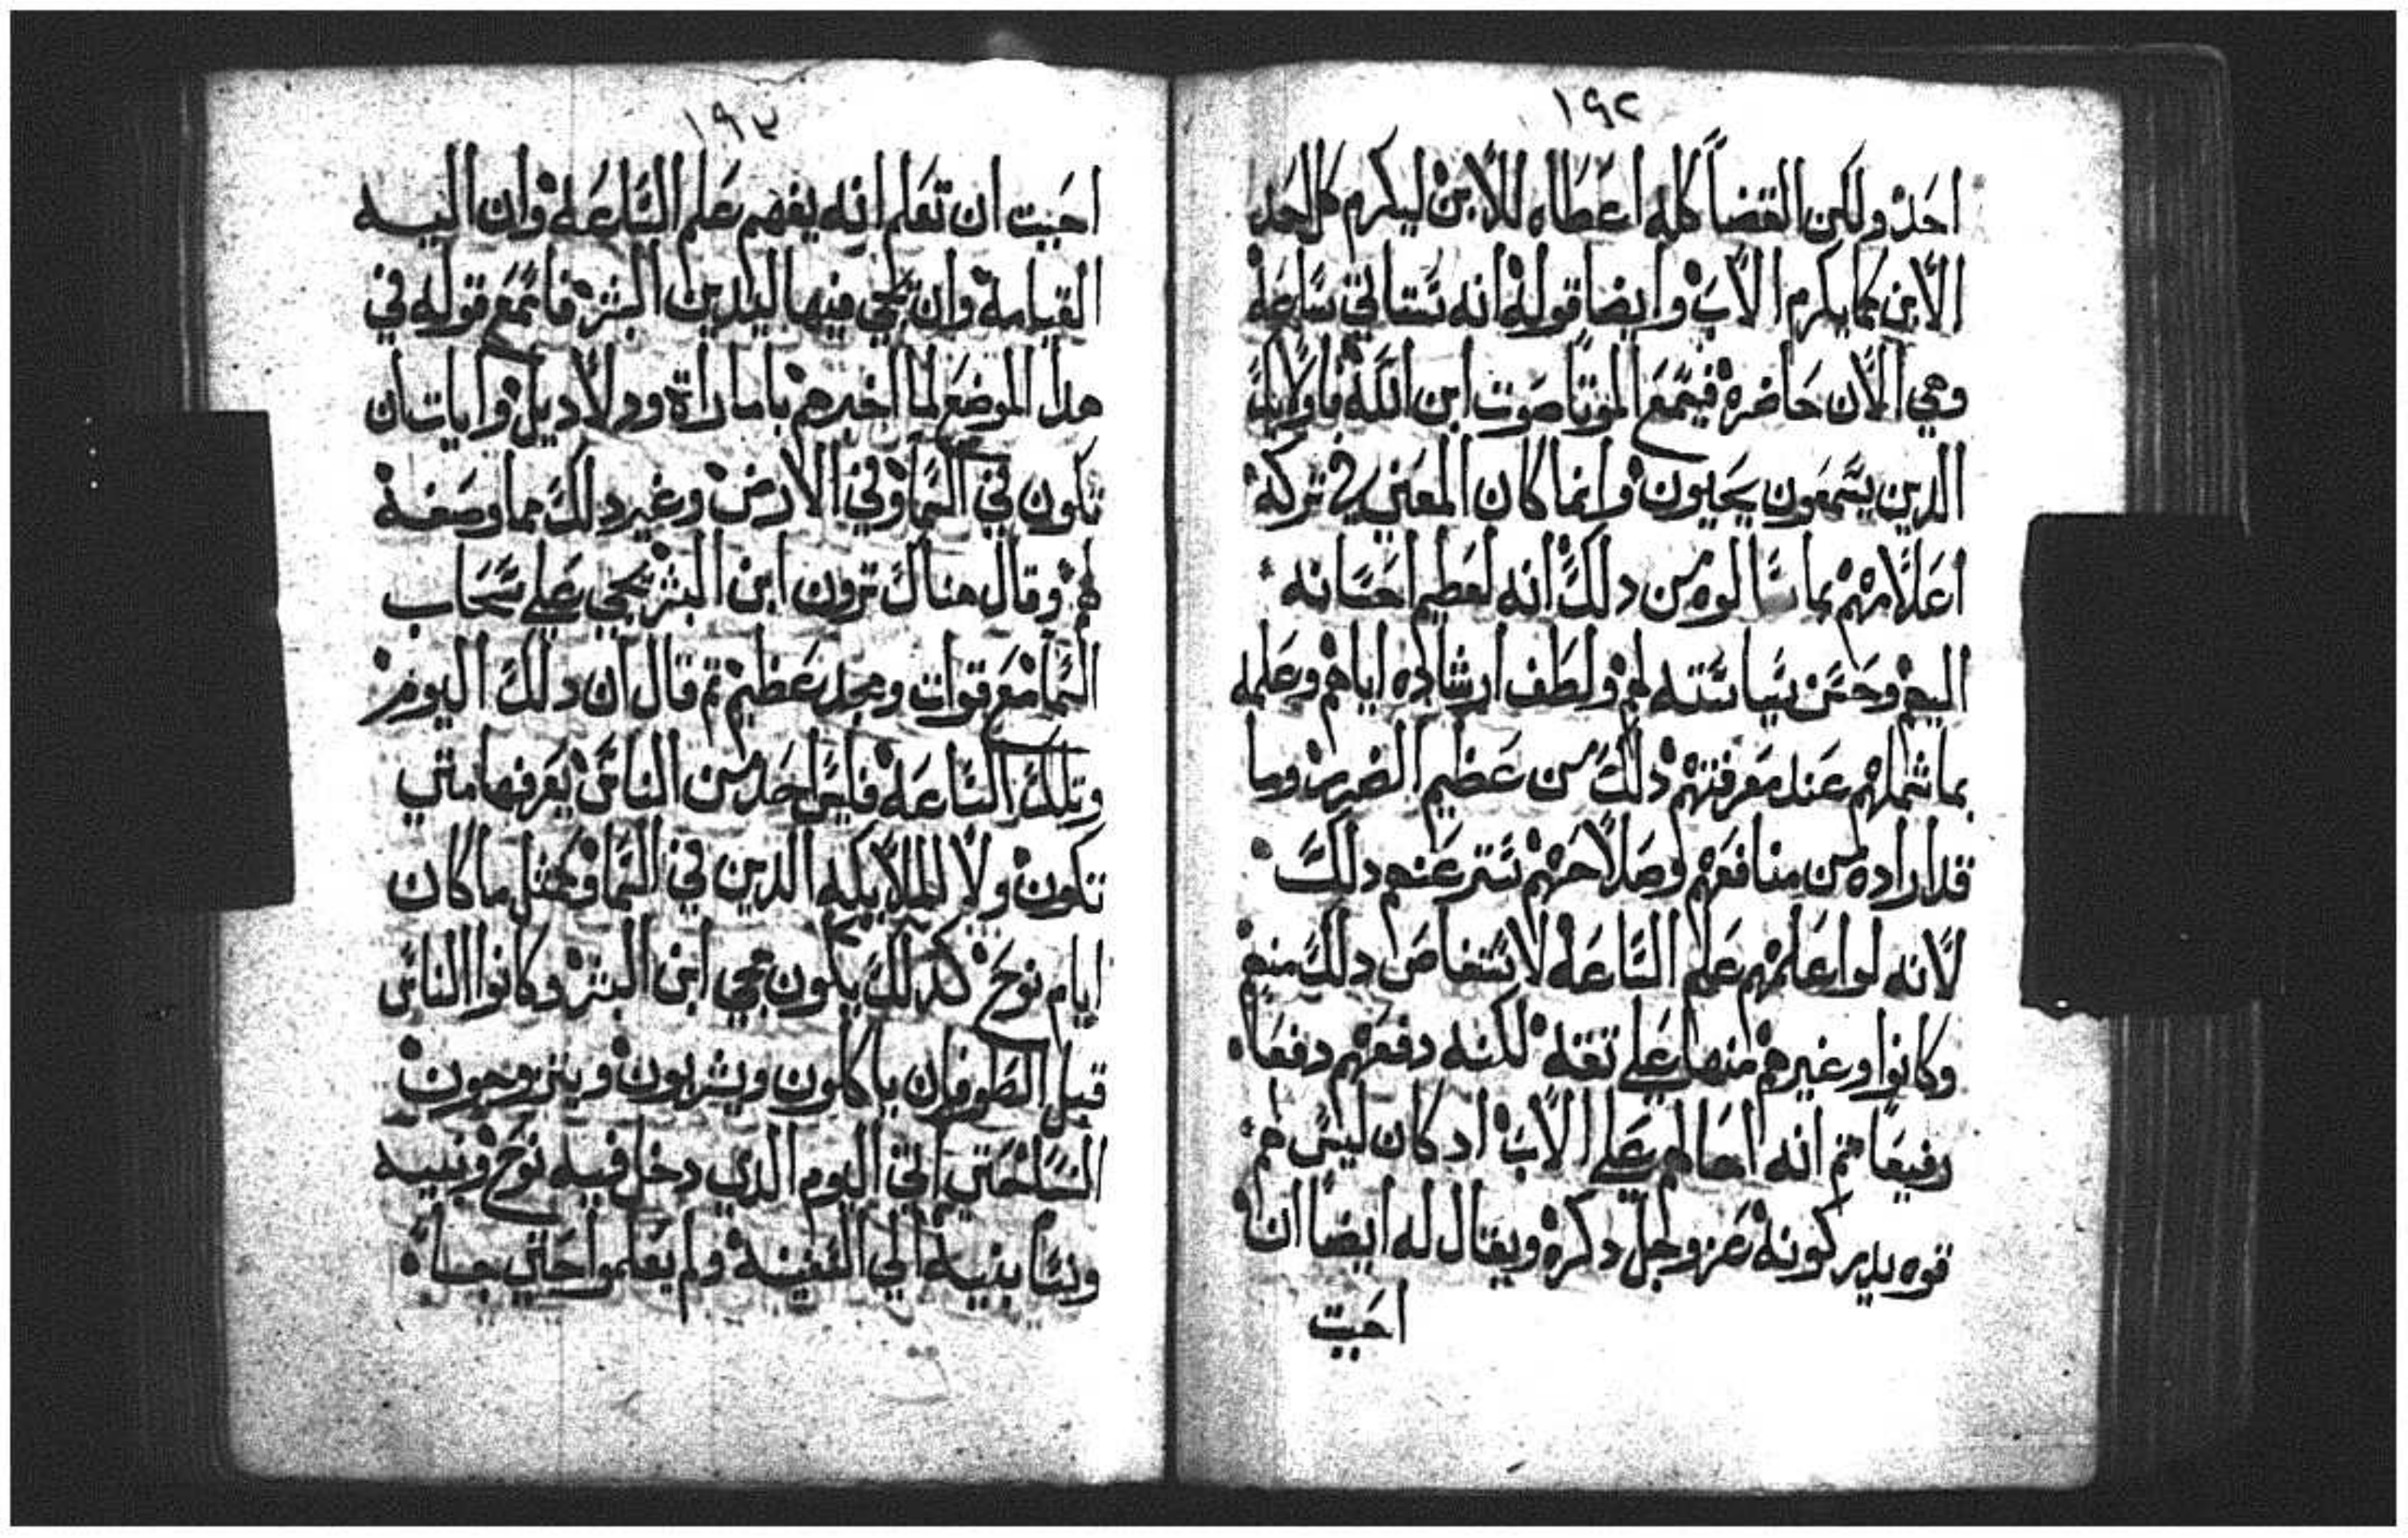 ١٩٢
احد ولكن القضا كله اعطاه للابن ليكرم كل احد
الابن كما يكرم الاب وايضا قوله انه ستاتي ساعه
وهي الان حاضره فيسمع الموتا صوت ابن الله فاولايك
الدين يسمعون يحيون وانما كان المعني في تركه
اعلامهم بما سالوه من دلك انه لعظيم احسانه
اليهم وحسن سياسته لهم ولطف ارشاده اياهم وعلمه
بما شملهم عند معرفتهم دلك من عظيم الضرر وما
قد اراده من منافعهم وصلاحهم ستر عنهم دلك
لانه لو اعلمهم علم الساعه لاستفاض دلك منهم
وكانوا وغيرهم منها علي تقه لكنه دفعهم دفعا
رفيعا تم انه احالهم علي الاب اد كان ليس لهم
قوه يدركونه عز وجل دكره ويقال له ايضا ان
احبيت
١٩٣
احبيت ان تعلم انه يفهم علم الساعه وان اليه
القيامه وان يجي فيها ليدين البشر فاسمع قوله في
هدا الموضع لما اخبرهم باماراة ودلاديل وايات ان
تكون في السما وفي الارض وغير دلك مما وصفه
لهم وقال هناك ترون ابن البشر يجي علي سحاب
السما مع قوات ومجد عظيم تم قال ان دلك اليوم
وتلك الساعه فليس احد من الناس يعرفها متي
تكون ولا الملايكه الدين في السما وكمثل ما كان
ايام نوح كدلك يكون مجي ابن البشر وكانوا الناس
قبل الطوفان ياكلون ويشربون ويتزوجون
النسا حتي الي اليوم الدي دخل فيه نوح وبنيه
ونسا بنيه الي السفينه ولم يعلموا حتي جاه